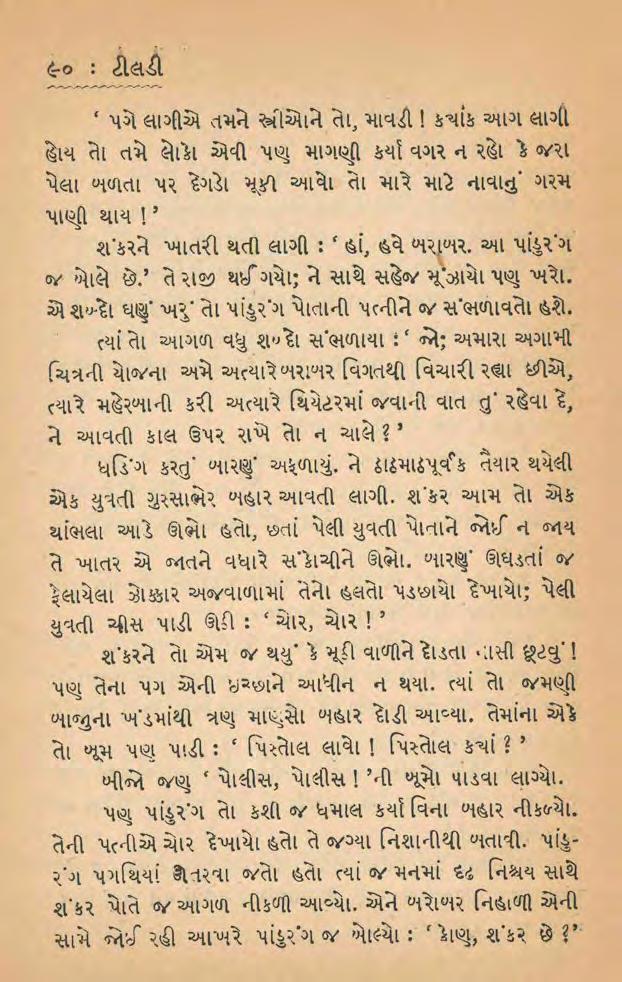 ૯૦ : ટીલડી
‘ પગે લાગીએ તમને સ્ત્રીઓને તો, માવડી ! કયાંક આગ લાગી
હોય તો તમે લોકો એવી પણ માગણી કર્યા વગર ન રહો કે જરા
પેલા બળતા પર દેગડો મૂકી આવો તો મારે માટે નાવાનું ગરમ
પાણી થાય !’
શંકરને ખાતરી થતી લાગી : ‘ હાં, હવે બરાબર. આ પાંડુરંગ
જ બોલે છે.’ તે રાજી થઈ ગયો; ને સાથે સહેજ મૂંઝાયો પણ ખરો.
એ શબ્દો ઘણું ખરું તો પાંડુરંગ પોતાની પત્નીને જ સંભળાવતો હશે.
ત્યાં તો આગળ વધુ શબ્દો સંભળાયા :‘ જો; અમારા અગામી
ચિત્રની યોજના અમે અત્યારે બરાબર વિગતથી વિચારી રહ્યા છીએ,
ત્યારે મહેરબાની કરી અત્યારે થિયેટરમાં જવાની વાત તું રહેવા દે,
ને આવતી કાલ ઉપર રાખે તો ન ચાલે ? ’
ધડિંગ કરતું બારણું અફળાયું. ને ઠાઠમાઠપૂર્વક તૈયાર થયેલી
એક યુવતી ગુસ્સાભેર બહાર આવતી લાગી. શંકર આમ તો એક
થાંભલા આડે ઊભો હતો, છતાં પેલી યુવતી પોતાને જોઈ ન જાય
તે ખાતર એ જાતને વધારે સંકોચીને ઊભો. બારણું ઊઘડતાં જ
ફેલાયેલા ઝોક્કાર અજવાળામાં તેનો હલતો પડછાયો દેખાયો; પેલી
યુવતી ચીસ પાડી ઊઠી : ‘ ચોર, ચોર ! ’
શંકરને તો એમ જ થયું કે મૂઠી વાળીને દોડતા નાસી છૂટવું !
પણ તેના પગ એની ઇચ્છાને આધીન ન થયા. ત્યાં તો જમણી
બાજુના ખંડમાંથી ત્રણ માણસો બહાર દોડી આવ્યા. તેમાંના એકે
તો બૂમ પણ પાડી : ‘ પિસ્તોલ લાવો ! પિસ્તોલ કયાં ? ’
બીજો જણ ‘ પોલીસ, પોલીસ ! ’ની બૂમો પાડવા લાગ્યો.
પણ પાંડુરંગ તો કશી જ ધમાલ કર્યા વિના બહાર નીકળ્યો.
તેની પત્નીએ ચોર દેખાયો હતો તે જગ્યા નિશાનીથી બતાવી. પાંડુ-
રંગ પગથિયાં ઊતરવા જતો હતો ત્યાં જ મનમાં દૃઢ નિશ્ચય સાથે
શંકર પોતે જ આગળ નીકળી આવ્યો. એને બરોબર નિહાળી એની
સામે જોઈ રહી આખરે પાંડુરંગ જ બોલ્યો : ‘ કોણ, શંકર છે ?’